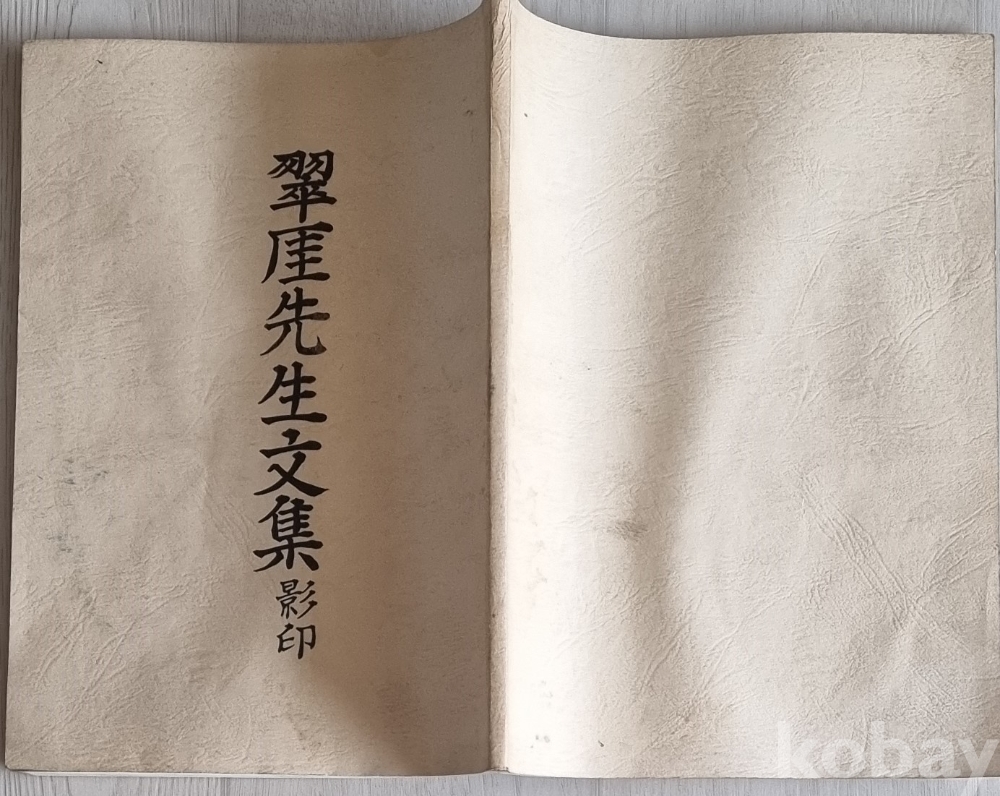 翠厓先生文集
影印
kobay